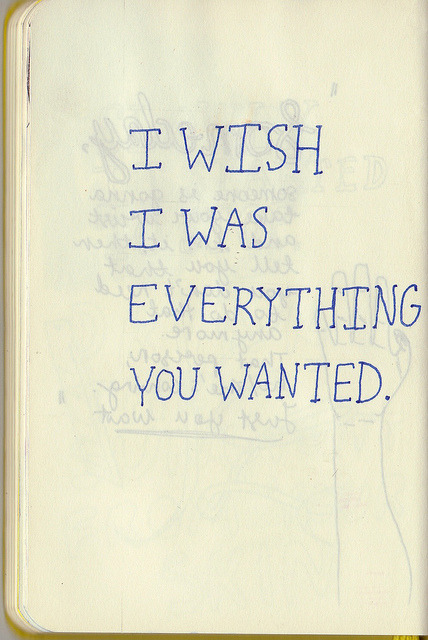 I WISH
I WAS
EVERYTHING
YOU WANTED.